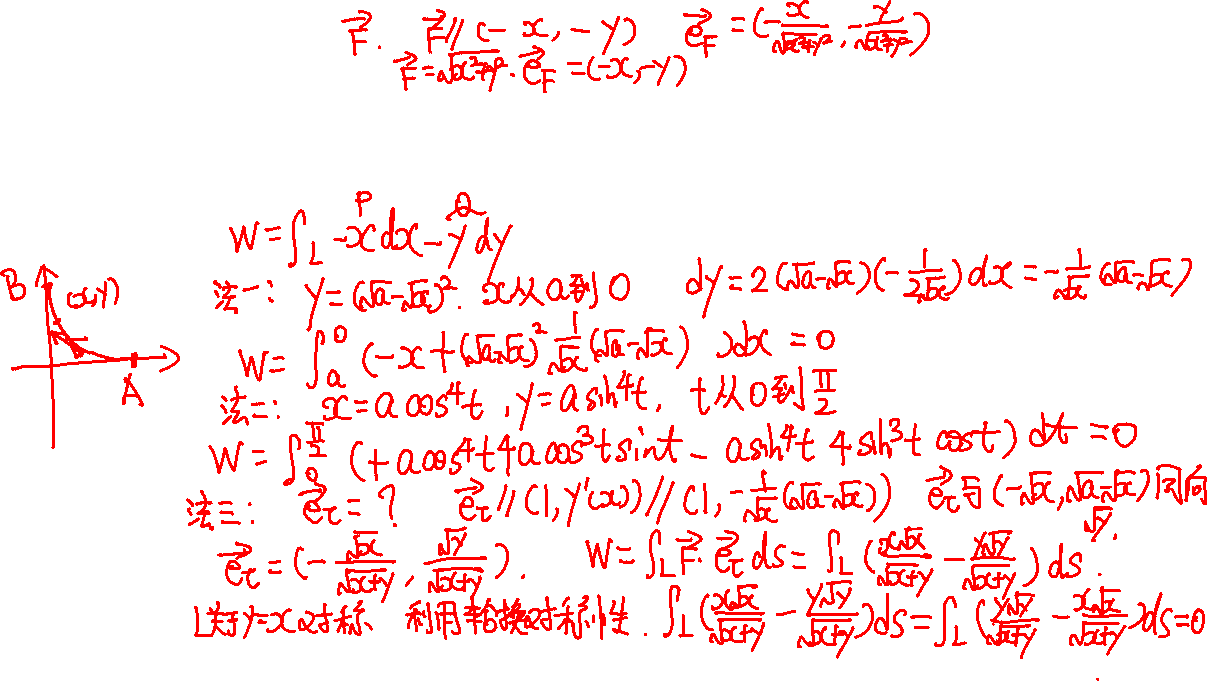 F⃗. F⃗ // (-x, -y) e⃗_F = (-x/√(x²+y²), -y/√(x²+y²))
F⃗ = √(x²+y²) · e⃗_F = (-x, -y)
P Q
W = ∫_L -x dx - y dy
B (x,y) A
法一: y = (√a-√x)². x从a到0 dy = 2(√a-√x)(-1/(2√x))dx = -1/√x (√a-√x)
W = ∫_a^0 (-x + (√a-√x)² 1/√x (√a-√x) )dx = 0
法二: x = a cos⁴t, y = a sin⁴t, t从0到π/2
W = ∫_0^(π/2) (+a cos⁴t 4a cos³t sint - a sin⁴t 4 sin³t cost) dt = 0
法三: e⃗_τ = ? e⃗_τ // (1, y'(x)) // (1, -1/√x (√a-√x)) e⃗_τ与(-√x, √a-√x)同向
√y.
e⃗_τ = (-√x/√(x+y), √y/√(x+y)). W = ∫_L F⃗ · e⃗_τ ds = ∫_L (x√x/√(x+y) - y√y/√(x+y)) ds.
L关于y=x对称 利用轮换对称性. ∫_L (x√x/√(x+y) - y√y/√(x+y))ds = ∫_L (y√y/√(x+y) - x√x/√(x+y))ds = 0